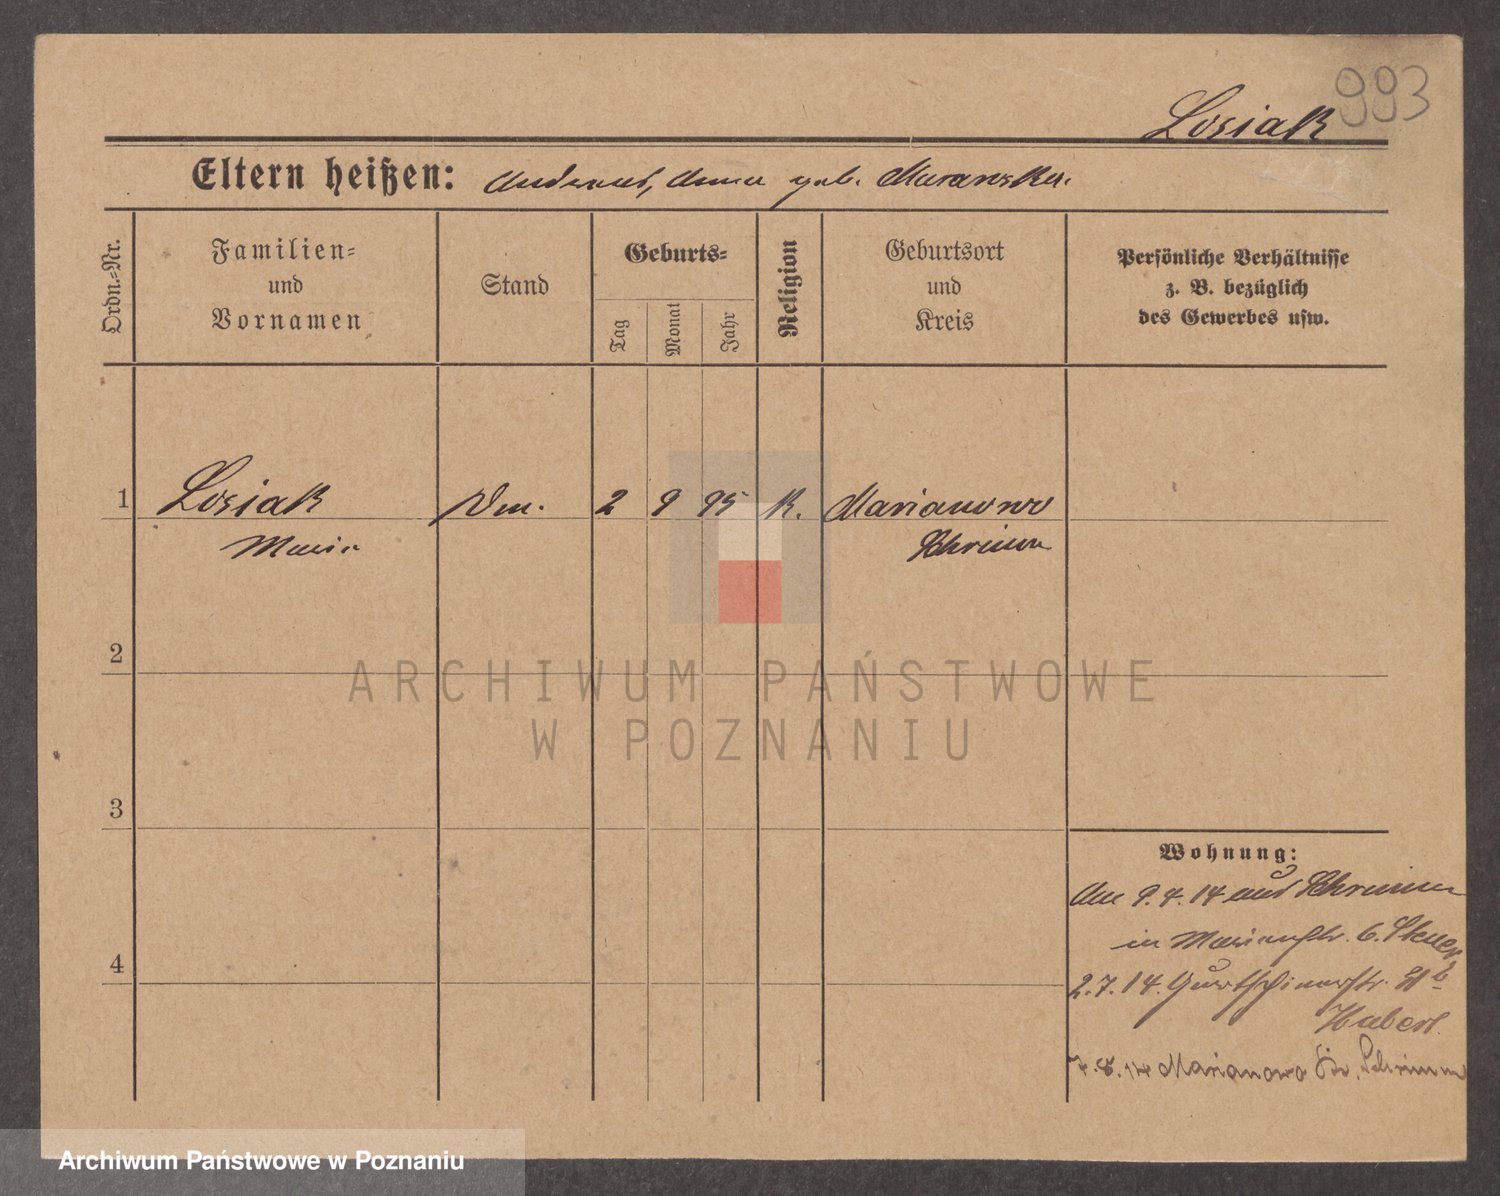 993
Losiak
Eltern heißen: Andreas, Anna geb. Murawska.
Ordn.=Nr.
Familien=
und
Vornamen
Stand
Geburts=
Tag
Monat
Jahr
Religion
Geburtsort
und
Kreis
Persönliche Verhältnisse
z. B. bezüglich
des Gewerbes usw.
1 Losiak Dm. 2 9 95 k. Marianowo
Maria Schrimm
2
ARCHIWUM PAŃSTWOWE
W POZNANIU
3
Wohnung:
Am 9.4.14 aus Schrimm
in Marienstr. 6.
4
2.7.14.
7.8.14 Marianowo Kr. Schrimm
Archiwum Państwowe w Poznaniu